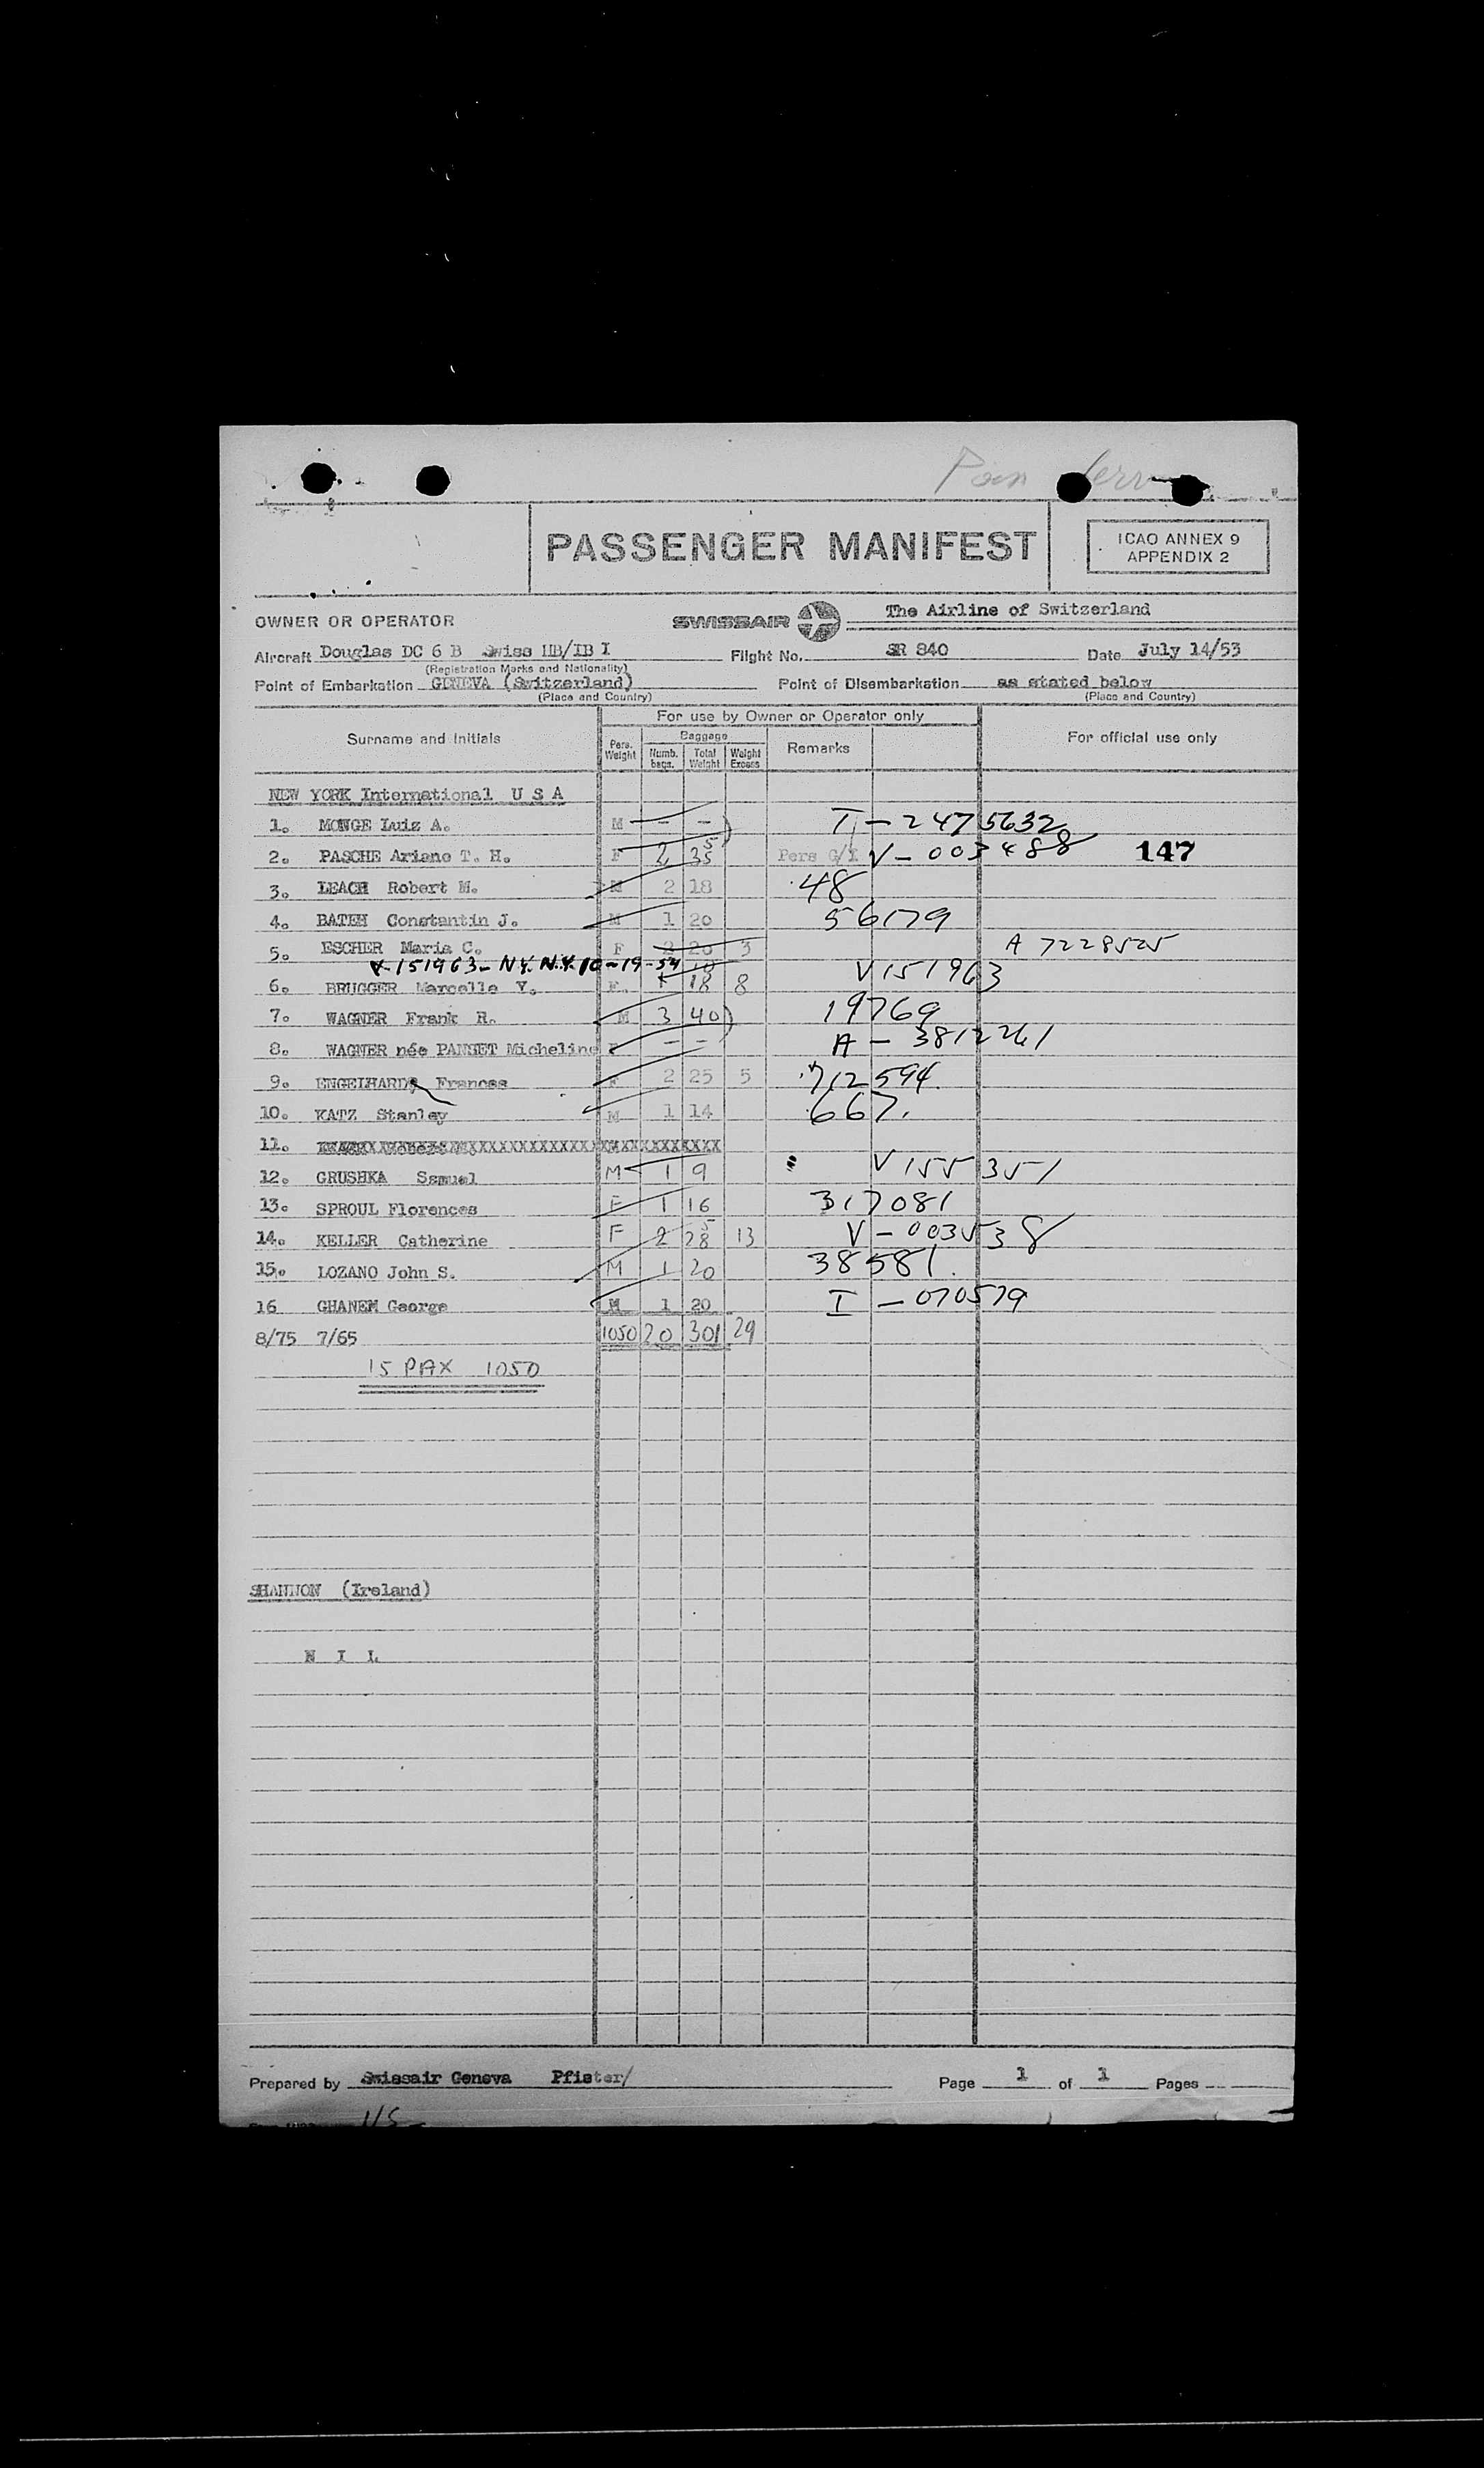 PASSENGER MANIFEST
ICAO ANNEX 9
APPENDIX 2
OWNER OR OPERATOR SWISSAIR The Airline of Switzerland
Aircraft Douglas DC 6 B Swiss HB/IB I Flight No. SR 840 Date July 14/53
(Registration Marks and Nationality)
Point of Embarkation GENEVA (Switzerland) Point of Disembarkation as stated below
(Place and Country) (Place and Country)
For use by Owner or Operator only
Surname and Initials Pers. Weight Baggage Numb. bags. Total Weight Weight Excess Remarks For official use only
NEW YORK International U S A
1. MONGE Luiz A. M - - I - 2475632
2. PASCHE Ariane T. H. F 2 35 Pers G/I V - 003488 147
3. LEACH Robert M. M 2 18 48
4. BATEH Constantin J. M 1 20 56179
5. ESCHER Maria C. F 2 20 3 A 7228525
V-151963 - N.Y. N.Y. 10-19-54
6. BRUGGER Marcelle Y. F. 1 18 8 V151963
7. WAGNER Frank R. M 3 40 19769
8. WAGNER née PANSET Micheline F - - A - 3812261
9. ENGELHARD Frances F 2 25 5 712594
10. KATZ Stanley M 1 14 667.
11.
12. GRUSHKA Samuel M 1 9 " V155351
13. SPROUL Florences F 1 16 317081
14. KELLER Catherine F 2 28 13 V - 003538
15. LOZANO John S. M 1 20 38581.
16 GHANEM George M 1 20 I - 070579
8/75 7/65 1050 20 301 29
15 PAX 1050
SHANNON (Ireland)
N I L
Prepared by Swissair Geneva Pfister/ Page 1 of 1 Pages